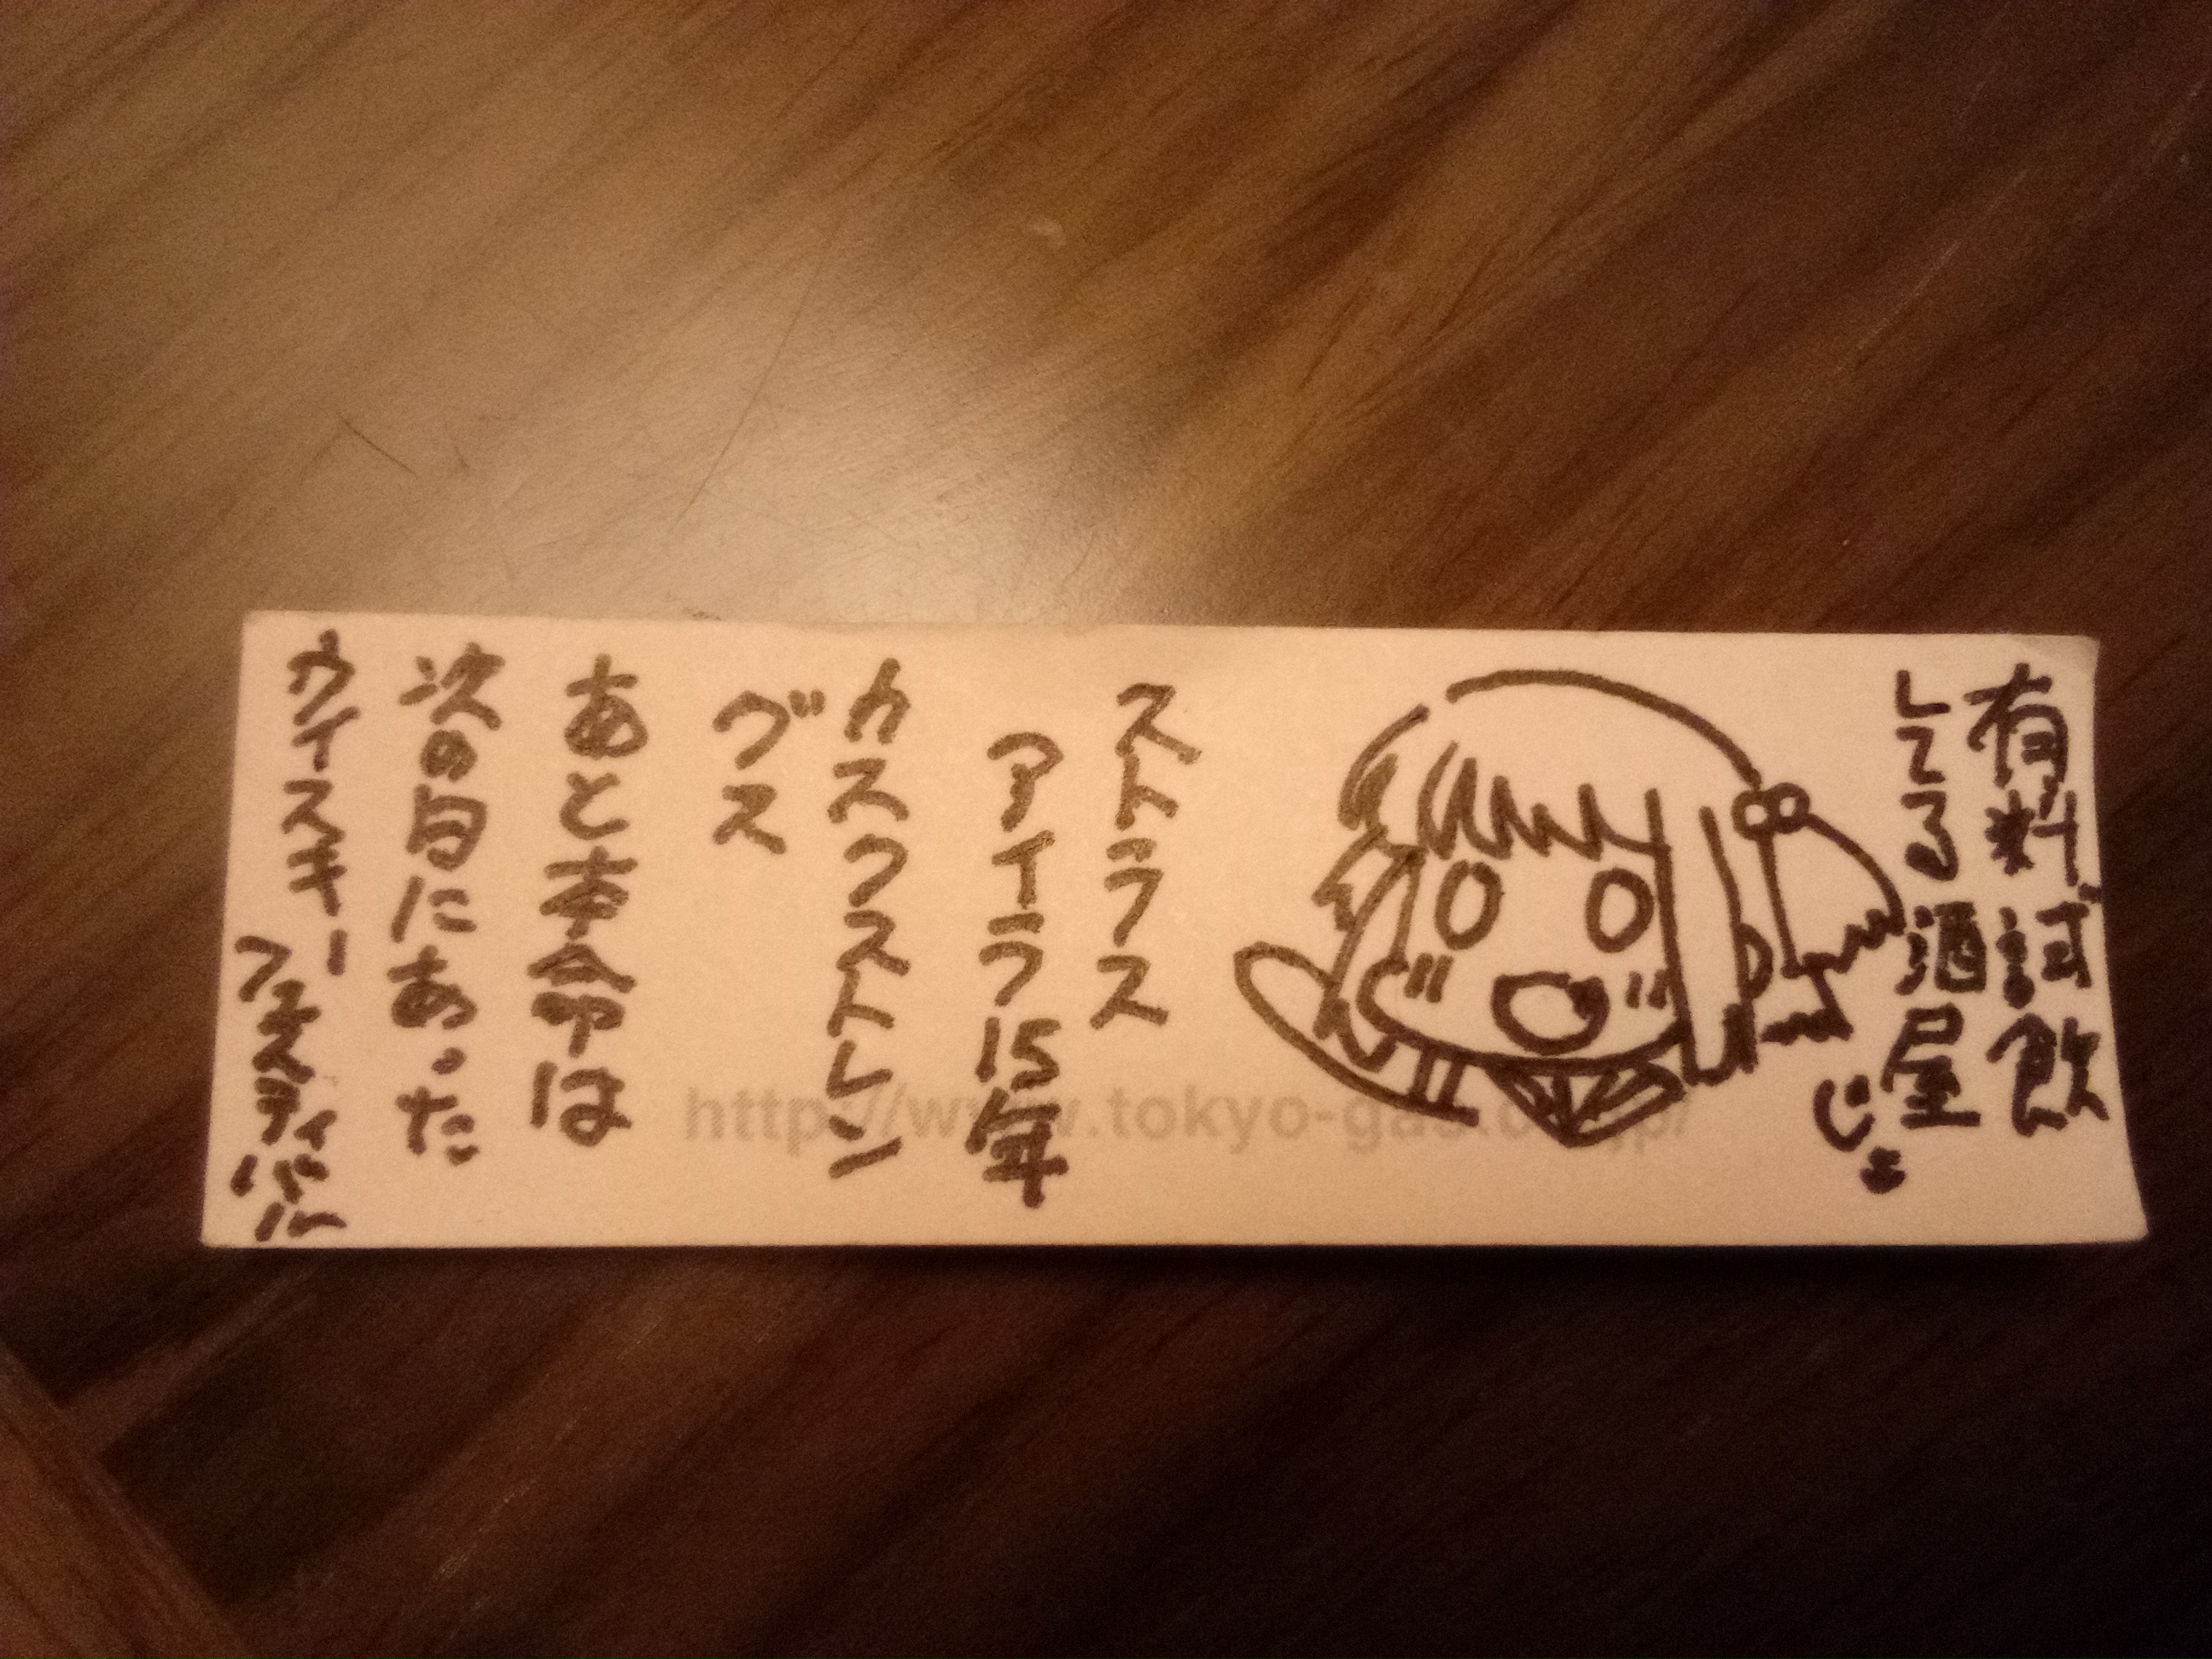 有料試飲
してる酒屋
じょ
ストラス
アイラ15年
カスクストレン
グス
あと本命は
次の日にあった
ウイスキー
フェスティバル
http://www.tokyo-gas.co.jp/